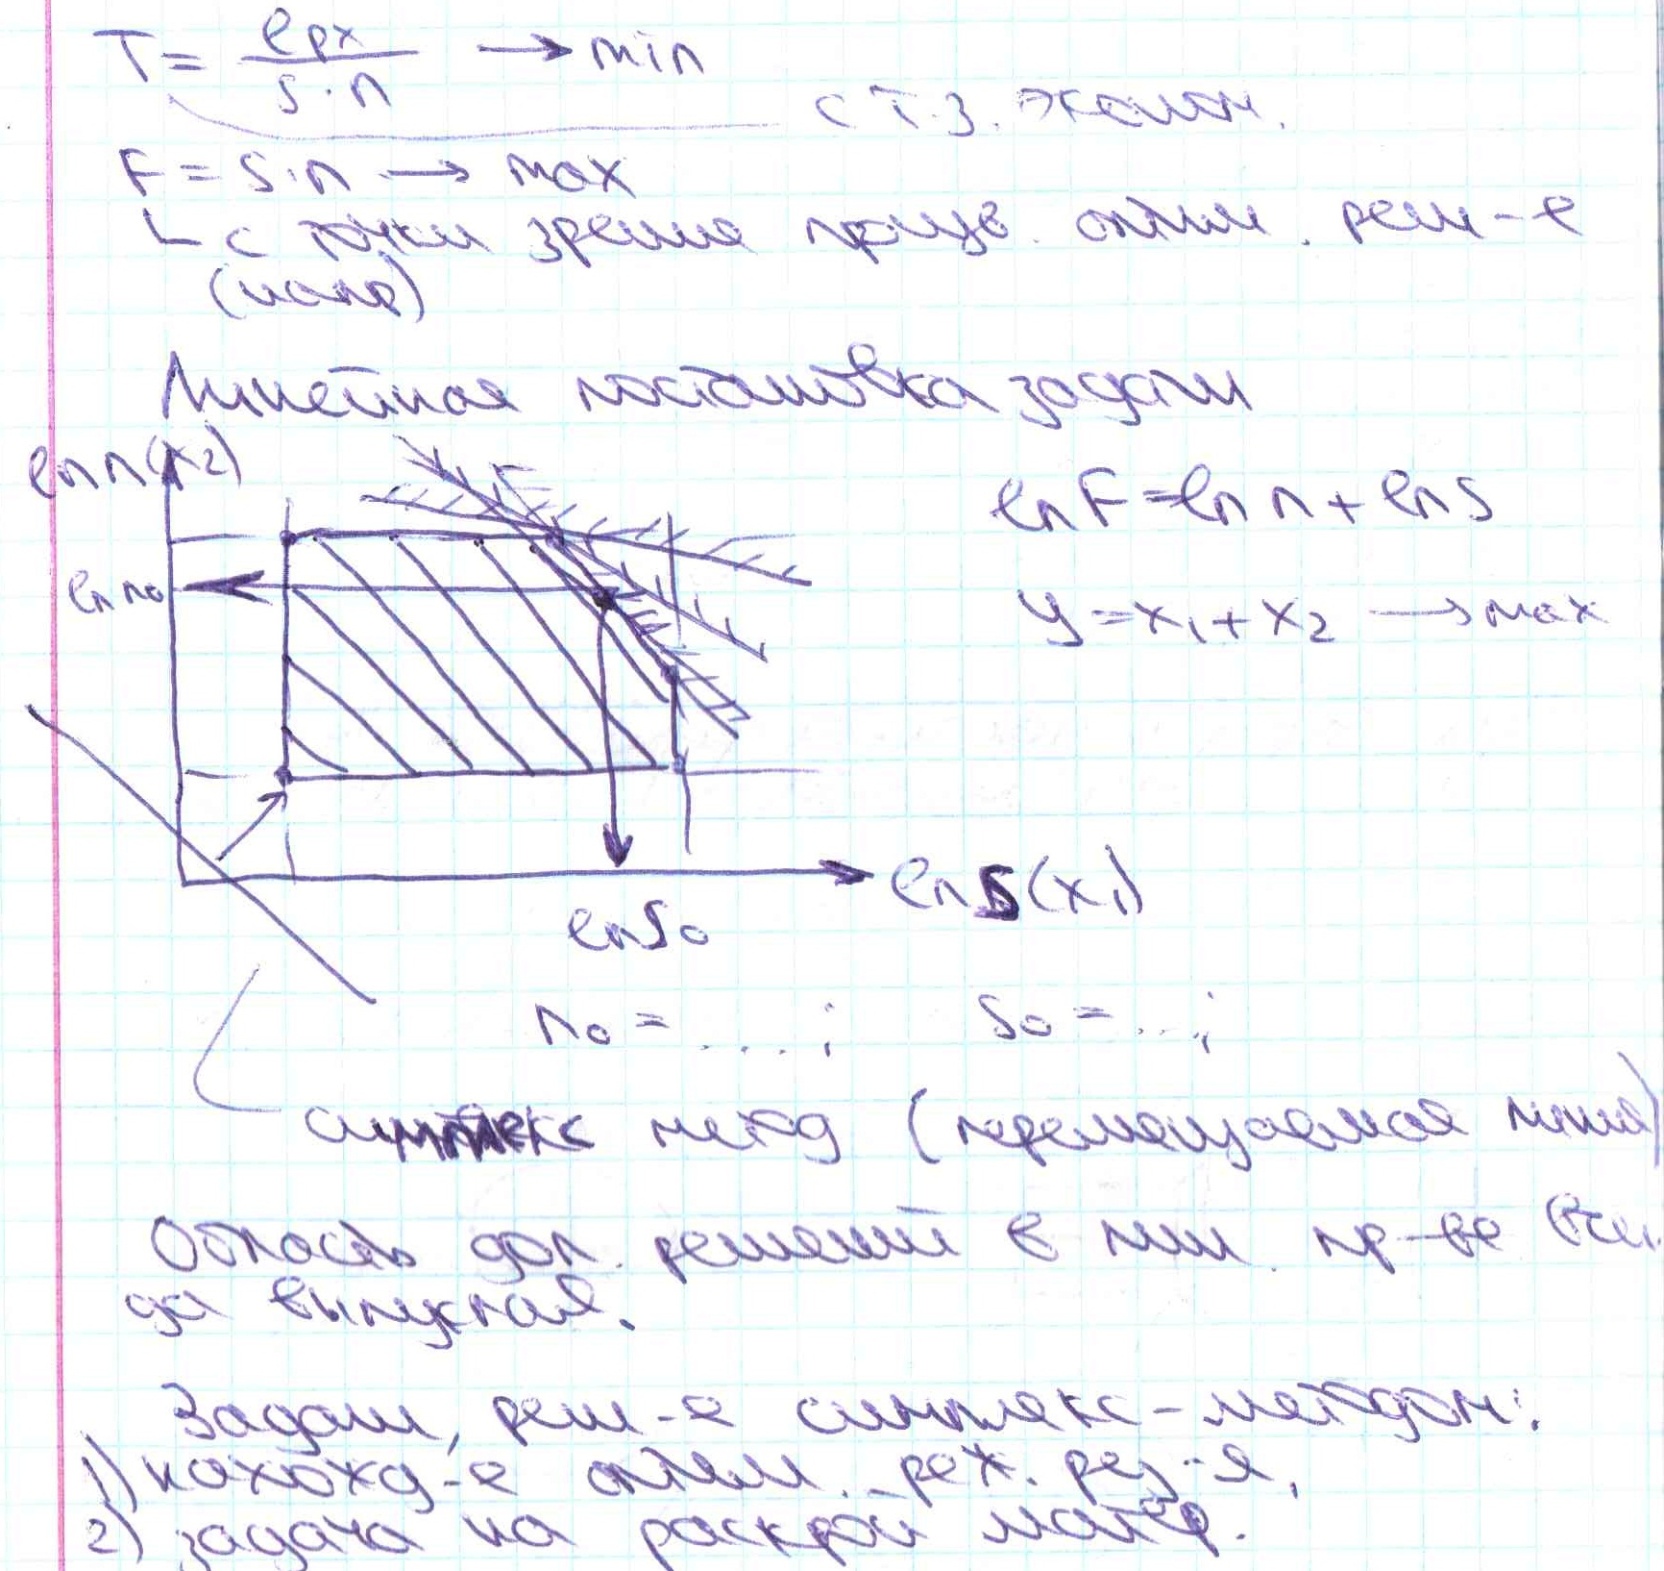 T = lрх / s·n → min
с т.з. эконом.
F = s·n → max
с точки зрения произв. оптим. реш-е
(напр)
Линейная постановка задачи
ln n(x₂)
ln F = ln n + ln s
ln n₀
y = x₁ + x₂ → max
ln S(x₁)
ln S₀
n₀ = ....; S₀ = ...;
симплекс метод (перемещаемая линия)
Область доп. решений в лин. пр-ве все
да выпуклая.
Задачи, реш-е симплекс-методом:
1) нахожд-е оптим. реж. рез-я,
2) задача на раскрой матер.